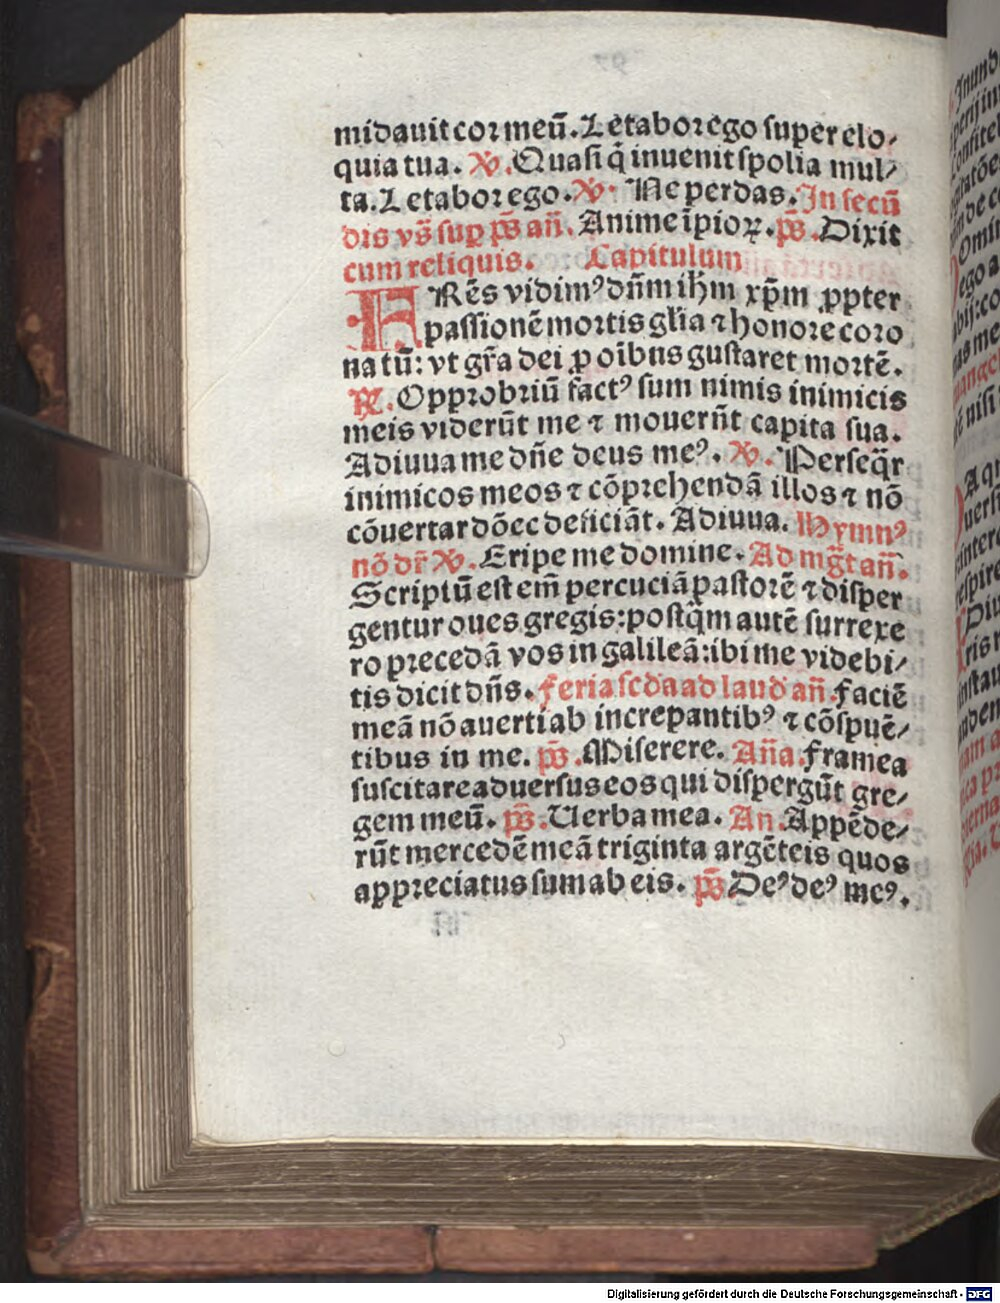 midauit cor meū. Letabor ego super elo⸗
quia tua. ℣. Quasi q̄ inuenit spolia mul⸗
ta. Letabor ego. ℣. Ne perdas. In secū
dis vs̄ suꝑ ps̄ añ. Anime īpioꝝ. ps̄. Dixit
cum reliquis. Capitulum
FRēs vidimꝰ dn̄m ihm̄ xp̄m ꝓpter
passionē mortis glīa ⁊ honore coro
natū: vt gr̄a dei ꝓ oībus gustaret mortē.
℟. Opprobriū factꝰ sum nimis inimicis
meis viderūt me ⁊ mouerūt capita sua.
Adiuua me dn̄e deus meꝰ. ℣. Perseq̄r
inimicos meos ⁊ cōprehendā illos ⁊ nō
cōuertar dōec deficiāt. Adiuua. Hymnꝰ
nō dr̄ ℣. Eripe me domine. Ad mḡt añ.
Scriptū est em̄ percuciā pastorē ⁊ disper
gentur oues gregis: postq̄m autē surrexe
ro precedā vos in galileā: ibi me videbi⸗
tis dicit dn̄s. Feria scd̄a ad laud̄ añ. Faciē
meā nō auerti ab increpantibꝰ ⁊ cōspuē⸗
tibus in me. ps̄. Miserere. Añа. Framea
suscitare aduersus eos qui dispergūt gre⸗
gem meū. ps̄. Uerba mea. An. Appēde⸗
rūt mercedē meā triginta argēteis quos
appreciatus sum ab eis. ps̄ Deꝰ deꝰ meꝰ.
Digitalisierung gefördert durch die Deutsche Forschungsgemeinschaft - DFG